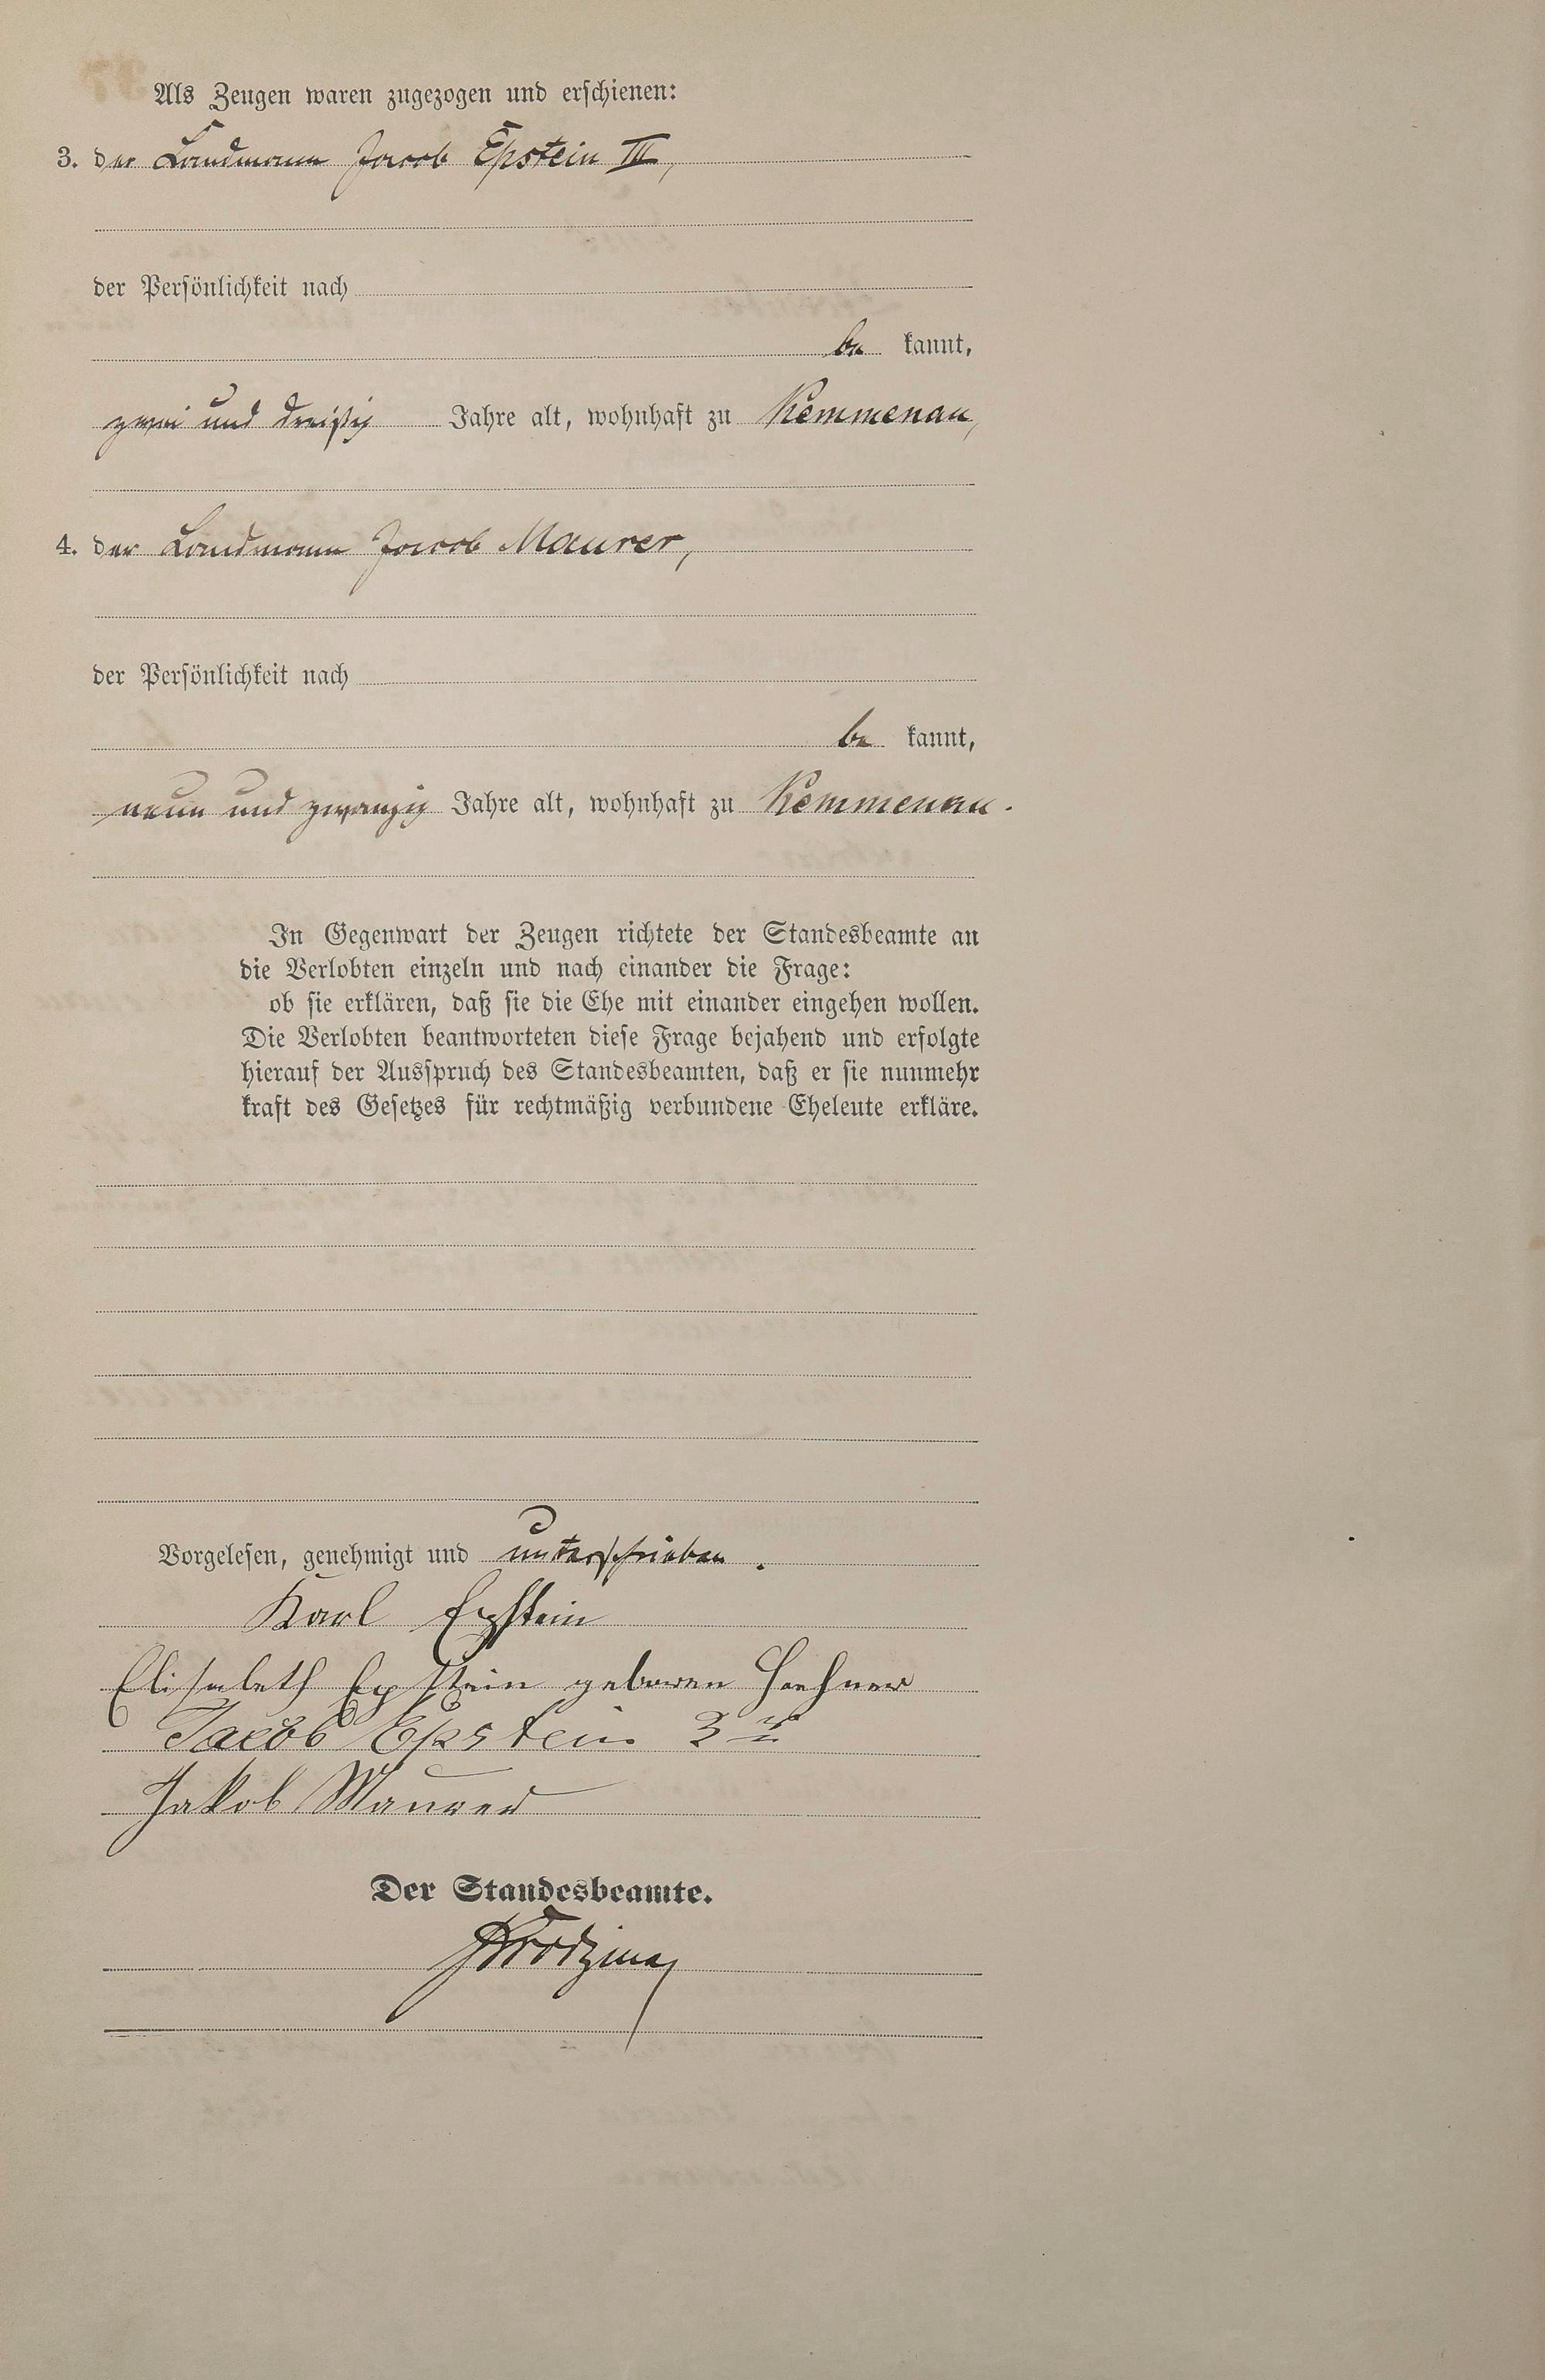 Als Zeugen waren zugezogen und erschienen:
3. der Landmann Jacob Epstein III,
der Persönlichkeit nach
be kannt,
zwei und dreißig Jahre alt, wohnhaft zu Kemmenau,
4. der Landmann Jacob Maurer,
der Persönlichkeit nach
be kannt,
neun und zwanzig Jahre alt, wohnhaft zu Kemmenau.
In Gegenwart der Zeugen richtete der Standesbeamte an
die Verlobten einzeln und nach einander die Frage:
ob sie erklären, daß sie die Ehe mit einander eingehen wollen.
Die Verlobten beantworteten diese Frage bejahend und erfolgte
hierauf der Ausspruch des Standesbeamten, daß er sie nunmehr
kraft des Gesetzes für rechtmäßig verbundene Eheleute erkläre.
Vorgelesen, genehmigt und unterschrieben.
Karl Epstein
Elisabeth Epstein geboren
Jacob Epstein 3
Jakob Maurer
Der Standesbeamte.